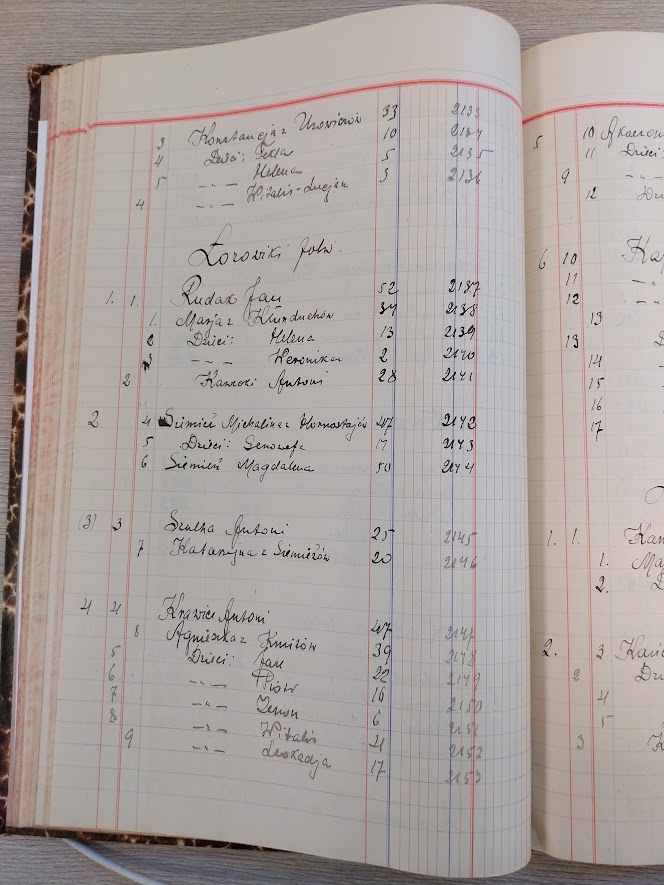 3 Konstancja z Urowiczów 33 2133
4 Dzieci: Tekla 10 2134
5 -"- Helena 5 2135
4 -"- Witalis-Lucjan 3 2136
Zorowiki folw.
1. 1. Rudak Jan 52 2137
1. Marja z Kunduchów 34 2138
2 Dzieci: Helena 13 2139
3 -"- Weronika 2 2140
2 Kawecki Antoni 28 2141
2 4 Siemież Michalina z Hornostajów 47 2142
5 Dzieci: Genowefa 17 2143
6 Siemież Magdalena 50 2144
(3) 3 Szulha Antoni 25 2145
7 Katarzyna z Siemieżów 20 2146
4 4 Krawiec Antoni 47 2147
8 Agnieszka z Kmitów 39 2148
5 Dzieci: Jan 22 2149
6 -"- Piotr 16 2150
7 -"- Zenon 6 2151
8 -"- Witalis 4 2152
9 -"- Leokadja 17 2153
5 10
11 Dzieci
9 -"-
12
6 10
11 -"-
12 -"-
13
13
14
15
16
17
1. 1.
1.
2.
2. 3
2
4
5
3